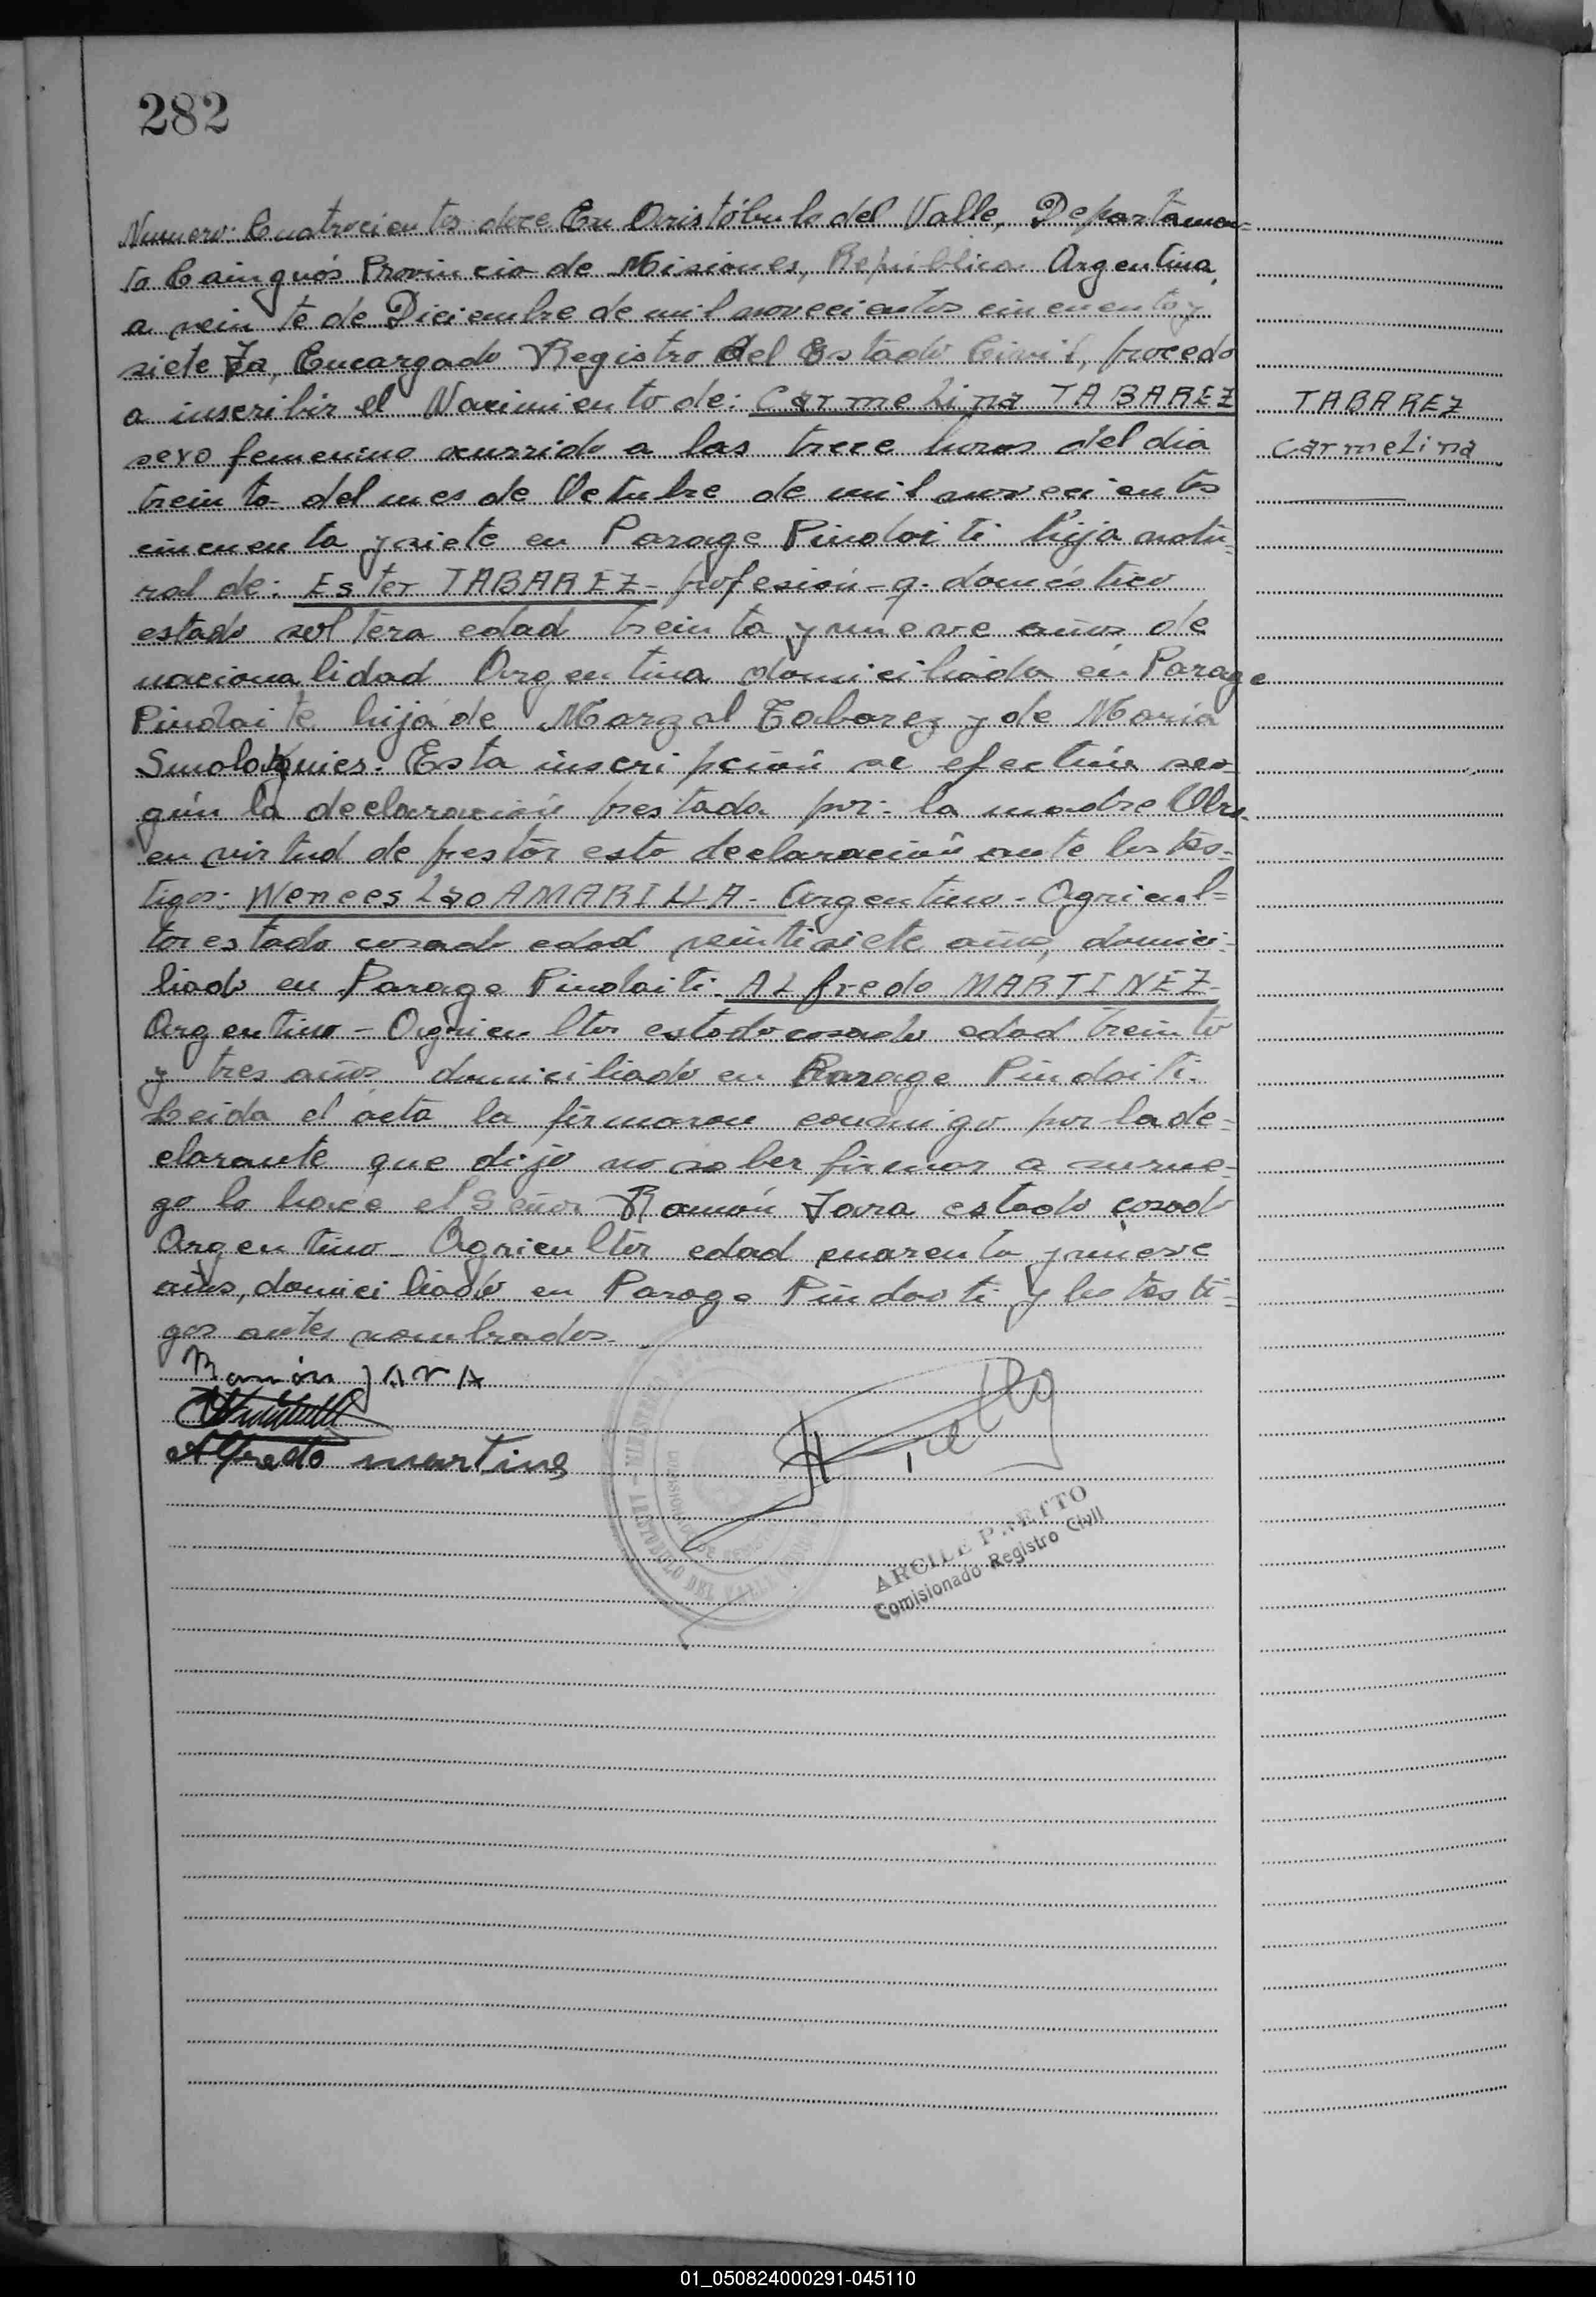 282
Numero: Cuatrocientos doce En Aristóbulo del Valle, Departamen=
to Cainguós Provincia de Misiones, República Argentina,
a veinte de Diciembre de mil novecientos cincuenta y
siete Yo, Encargado Registro del Estado Civil, procedo
a inscribir el Nacimiento de: CarmeLina TABAREZ
TABAREZ
sexo femenino ocurrido a las trece horas del dia
CarmeLina
treinta del mes de Octubre de mil novecientos
cincuenta y siete en Parage Pindaiti hija natu=
ral de: Ester TABAREZ- profesión-q. doméstico
estado soltera edad treinta y nueve años de
nacionalidad Argentina domiciliada en Parage
Pindaite hija de Marzal Tabarez y de Maria
Esta inscripción se efectúa se=
gún la declaración prestada por: la madre
en virtud de prestar esta declaración ante los tes=
tigos: WencesLao AMARILLA- Argentino- Agricul=
tor estado casado edad veintisiete años, domici=
liado en Parage Pindaiti. ALfredo MARTINEZ-
Argentino- Agricultor estado casado edad treinta
y tres años domiciliado en Parage Pindaiti.
Leida el acta la firmaron conmigo por la de=
clarante que dijo no saber firmar a su rue=
go lo hace el Señor Ramón Jara estado casado
Argentino- Agricultor edad cuarenta y nueve
años, domiciliado en Parage Pindaiti y los testi=
gos antes nombrados.
Ramón JArA
Alfredo martines
ARISTOBULO DEL VALLE
ARCILE PRETTO
Comisionado Registro Civil
01_050824000291-045110